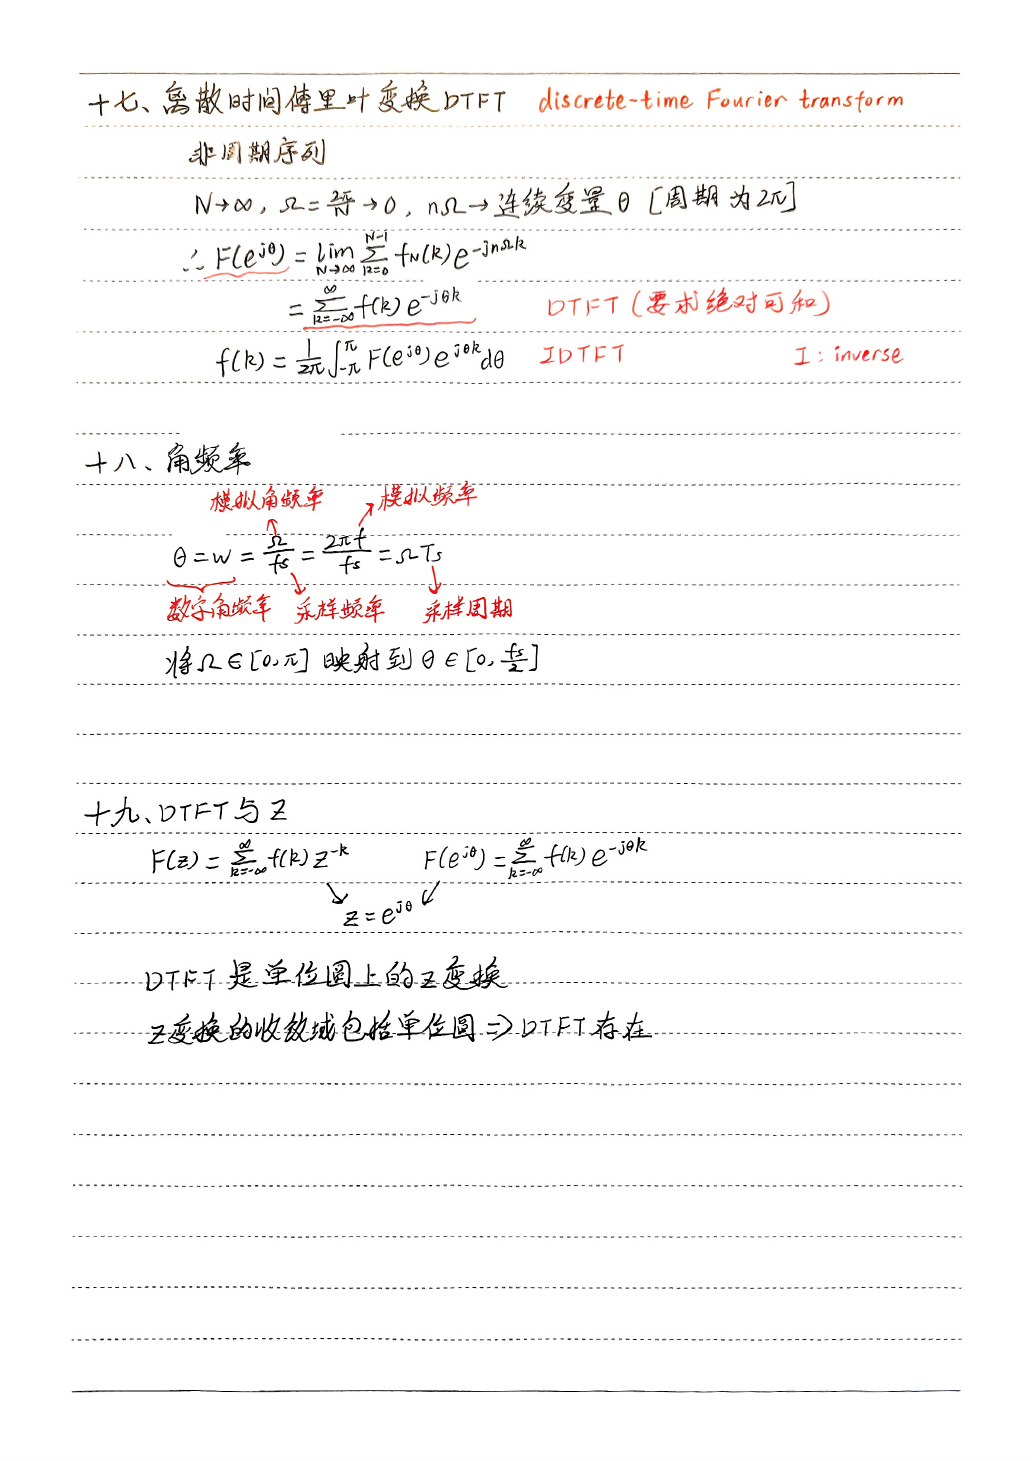 十七、离散时间傅里叶变换DTFT discrete-time Fourier transform
非周期序列
N→∞, Ω=2π/N→0, nΩ→连续变量θ [周期为2π]
∴ F(e^{jθ}) = lim_{N→∞} Σ_{k=0}^{N-1} f_N(k)e^{-jnΩk}
= Σ_{k=-∞}^{∞} f(k)e^{-jθk} DTFT(要求绝对可和)
f(k) = 1/2π ∫_{-π}^{π} F(e^{jθ})e^{jθk}dθ IDTFT I: inverse
十八、角频率
模拟角频率 模拟频率
θ=w=Ω/fs=2πf/fs=ΩTs
数字角频率 采样频率 采样周期
将Ω∈[0,π]映射到θ∈[0,fs/2]
十九、DTFT与Z
F(z)=Σ_{k=-∞}^{∞} f(k)Z^{-k} F(e^{jθ})=Σ_{k=-∞}^{∞} f(k)e^{-jθk}
z=e^{jθ}
DTFT是单位圆上的Z变换
Z变换的收敛域包括单位圆⇒DTFT存在